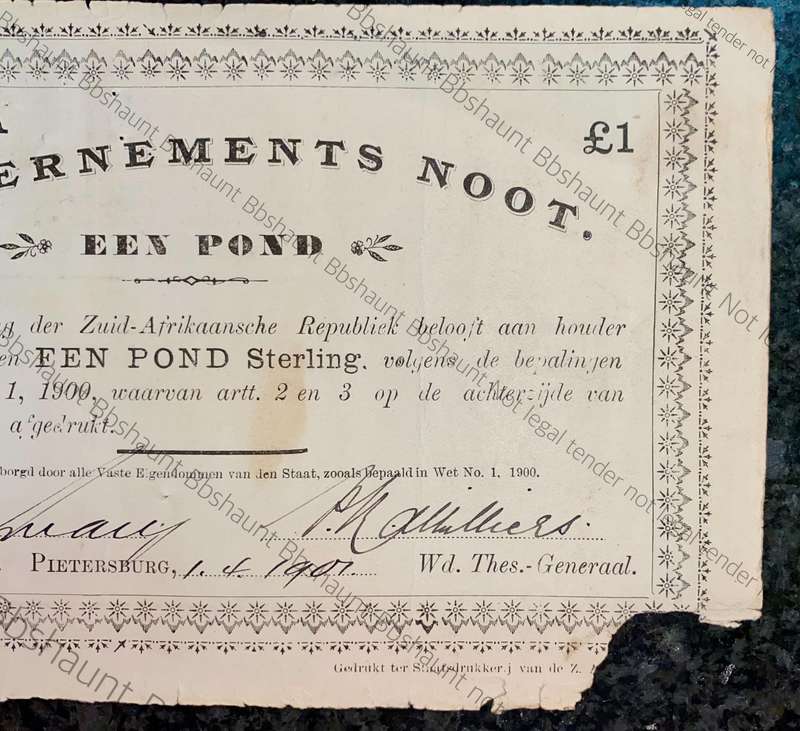 £1
ERNEMENTS NOOT.
EEN POND
der Zuid-Afrikaansche Republiek belooft aan houder
EEN POND Sterling, volgens de bepalingen
1, 1900, waarvan artt. 2 en 3 op de achterzijde van
afgedrukt.
borgd door alle Vaste Eigendommen van den Staat, zooals bepaald in Wet No. 1, 1900.
PIETERSBURG, 1.4.1901. Wd. Thes.-Generaal.
Gedrukt ter Staatsdrukkerij van de Z.
Bbshaunt Not legal tender